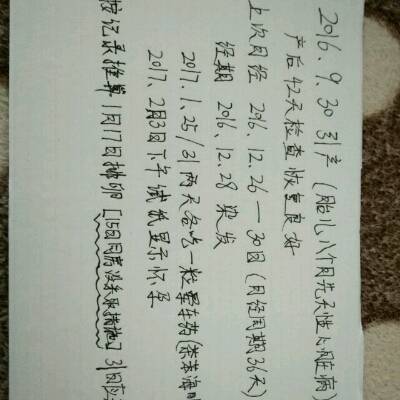 2016.9.30引产（胎儿八个月先天性心脏病）
产后42天检查恢复良好
上次月经 2016.12.26—30日（月经周期36天）
经期 2016.12.28染发
2017.1.25/31两天各吃一粒晕车药（茶苯海明
2017.2月3日下午试纸显示怀孕
按记录推算1月17日排卵[15日同房没采取措施] 31日应